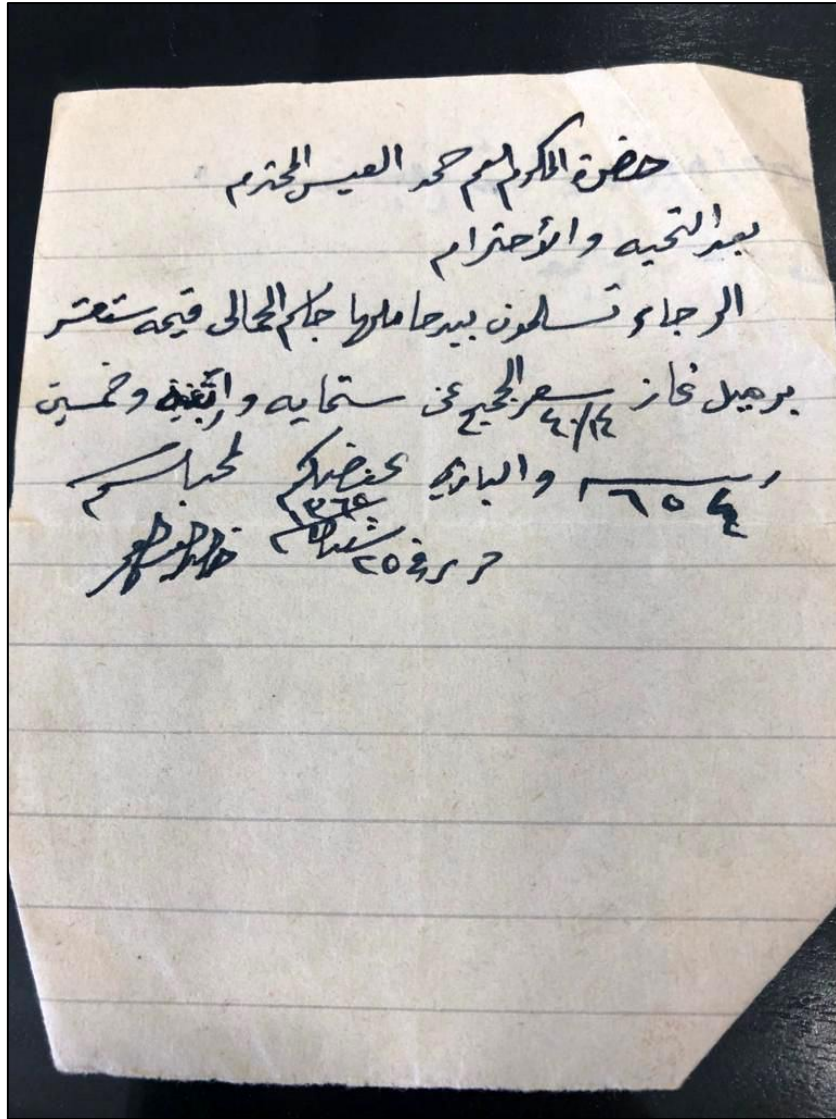 حضرة المكرم العم حمد العيسى المحترم
بعد التحيه والأحترام
الرجاء تسلمون بيد حاملها جاسم الحمالى قيمة ستعشر
برميل غاز سعر الجميع عن ستمايه و وخمسين
٦٥٤ والباري يحفضكم لمحبكم
حرر في ٢٥ شعبان ١٣٦٥